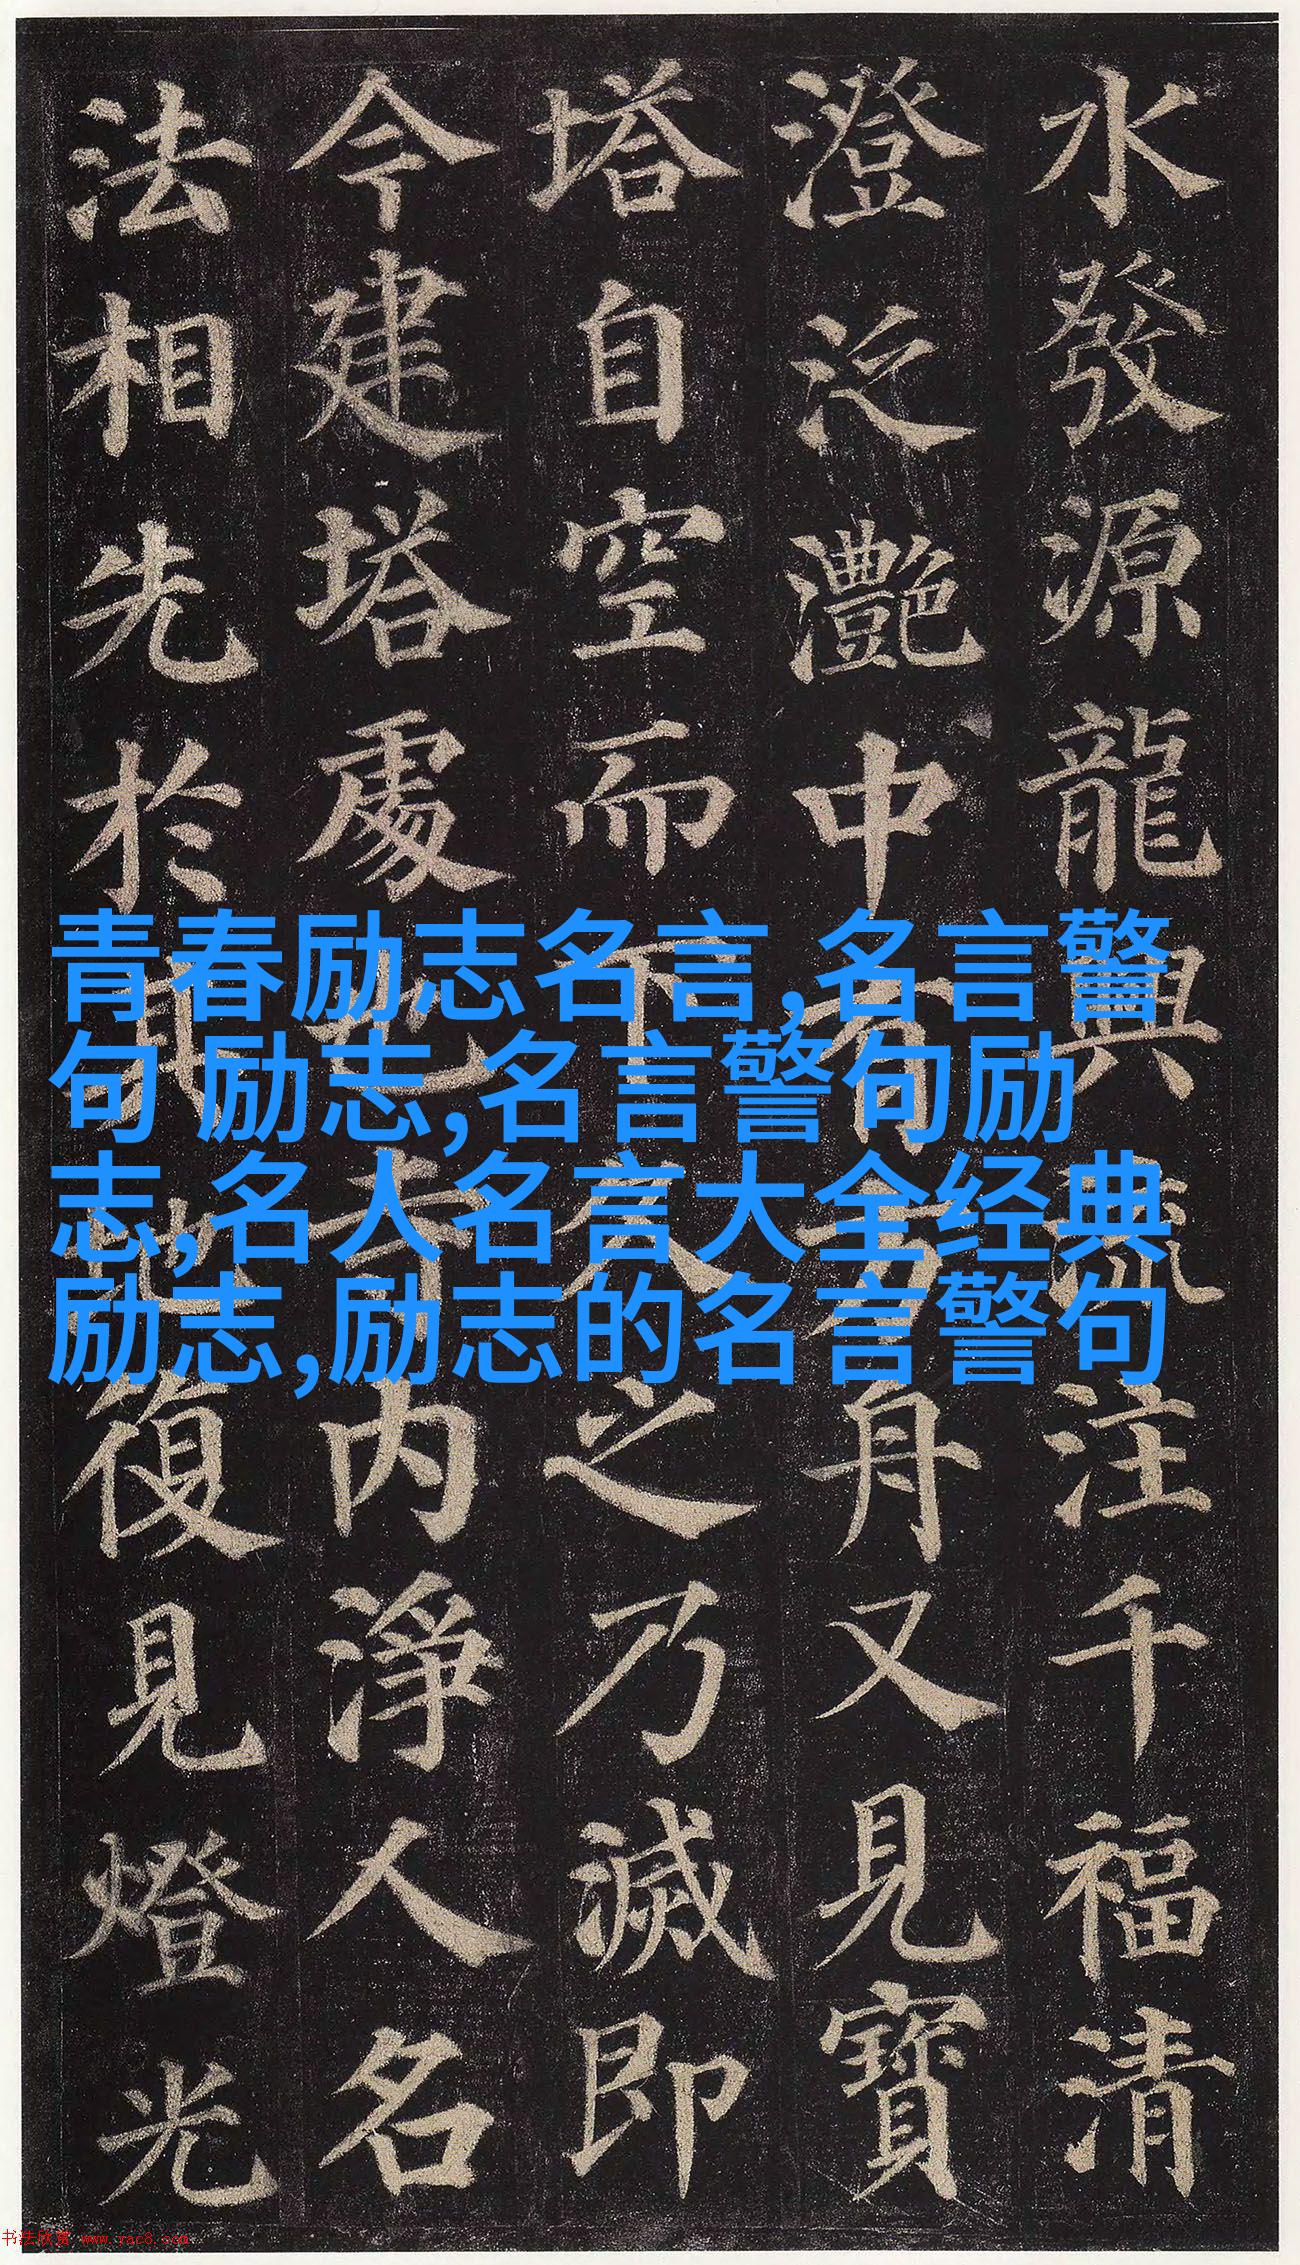 水發源龍興流注千福清
澄泛灩中有方舟又見寶
塔自空而下久之乃滅即
今建塔處也寺内淨人名
法相先於其地復見燈光
青春励志名言,名言警
句 励志,名言警句励
志,名人名言大全经典
励志,励志的名言警句
书法欣赏 www.yac8.com